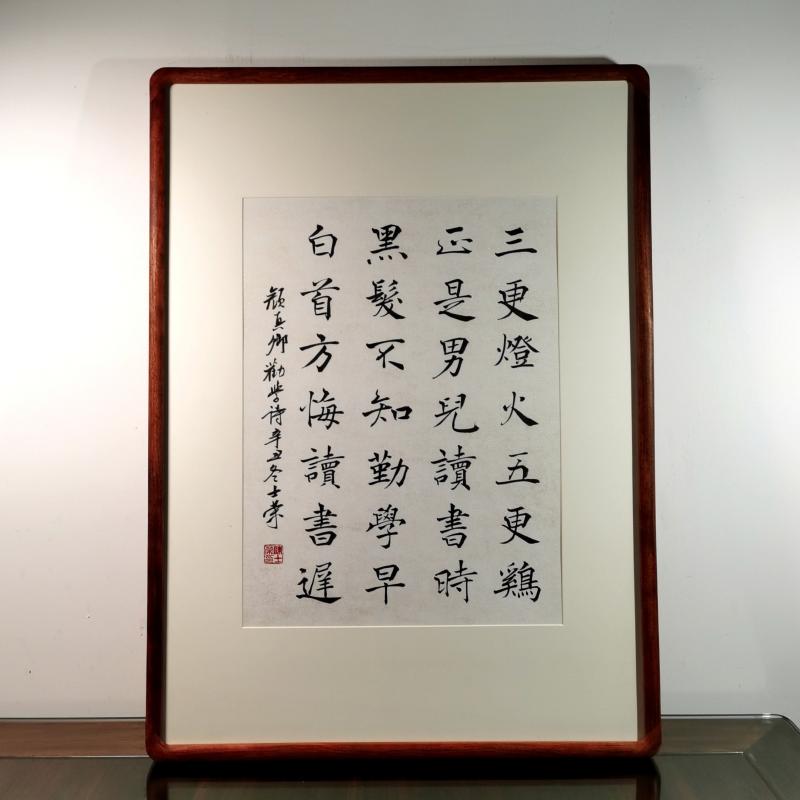 三更燈火五更鷄
正是男兒讀書時
黑髮不知勤學早
白首方悔讀書遲
顔真卿勸學詩辛丑冬士榮
陳士榮印